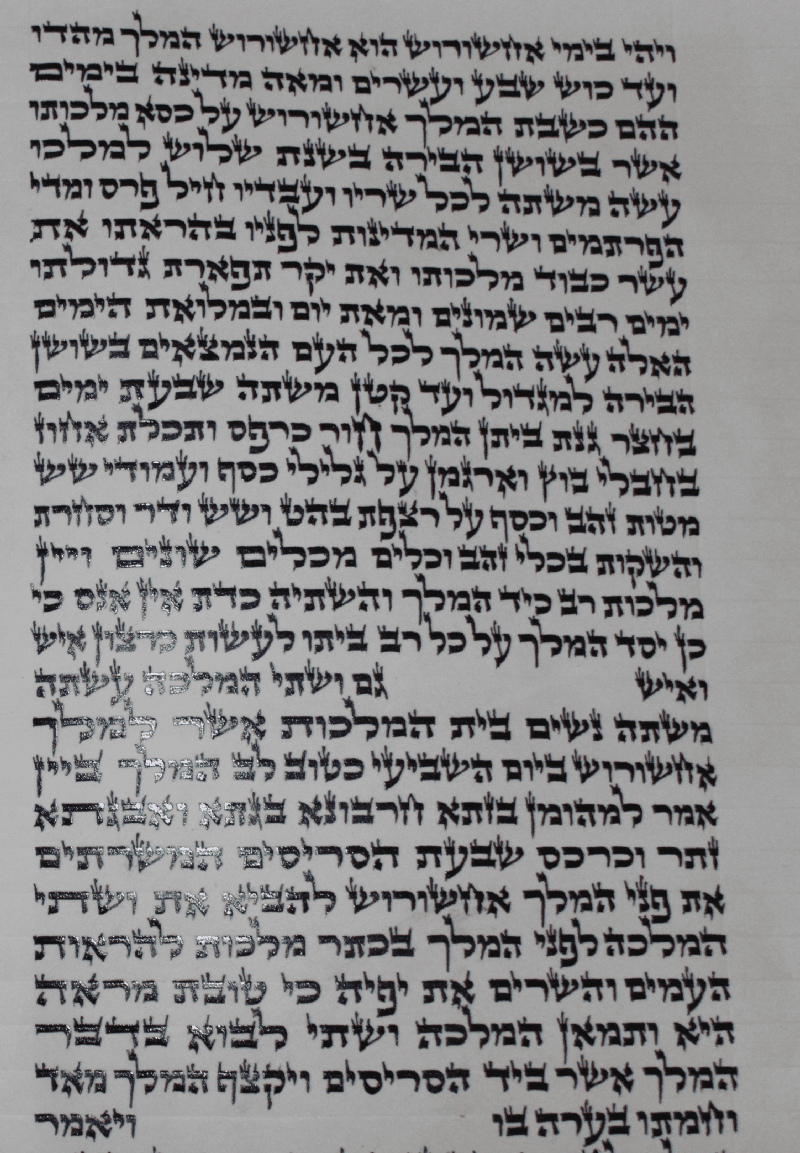 ויהי בימי אחשורוש הוא אחשורוש המלך מהדו
ועד כוש שבע ועשרים ומאה מדינה בימים
ההם כשבת המלך אחשורוש על כסא מלכותו
אשר בשושן הבירה בשנת שלוש למלכו
עשה משתה לכל שריו ועבדיו חיל פרס ומדי
הפרתמים ושרי המדינות לפניו בהראתו את
עשר כבוד מלכותו ואת יקר תפארת גדולתו
ימים רבים שמונים ומאת יום ובמלואת הימים
האלה עשה המלך לכל העם הנמצאים בשושן
הבירה למגדול ועד קטן משתה שבעת ימים
בחצר גנת ביתן המלך חור כרפס ותכלת אחוז
בחבלי בוץ וארגמן על גלילי כסף ועמודי שש
מטות זהב וכסף על רצפת בהט ושש ודר וסחרת
והשקות בכלי זהב וכלים מכלים שונים ויין
מלכות רב כיד המלך והשתיה כדת אין אנס כי
כן יסד המלך על כל רב ביתו לעשות כרצון איש
ואיש גם ושתי המלכה עשתה
משתה נשים בית המלכות אשר למלך
אחשורוש ביום השביעי כטוב לב המלך ביין
אמר למהומן בזתא חרבונא בגתא ואבגתא
זתר וכרכס שבעת הסריסים המשרתים
את פני המלך אחשורוש להביא את ושתי
המלכה לפני המלך בכתר מלכות להראות
העמים והשרים את יפיה כי טובת מראה
היא ותמאן המלכה ושתי לבוא בדבר
המלך אשר ביד הסריסים ויקצף המלך מאד
וחמתו בערה בו ויאמר